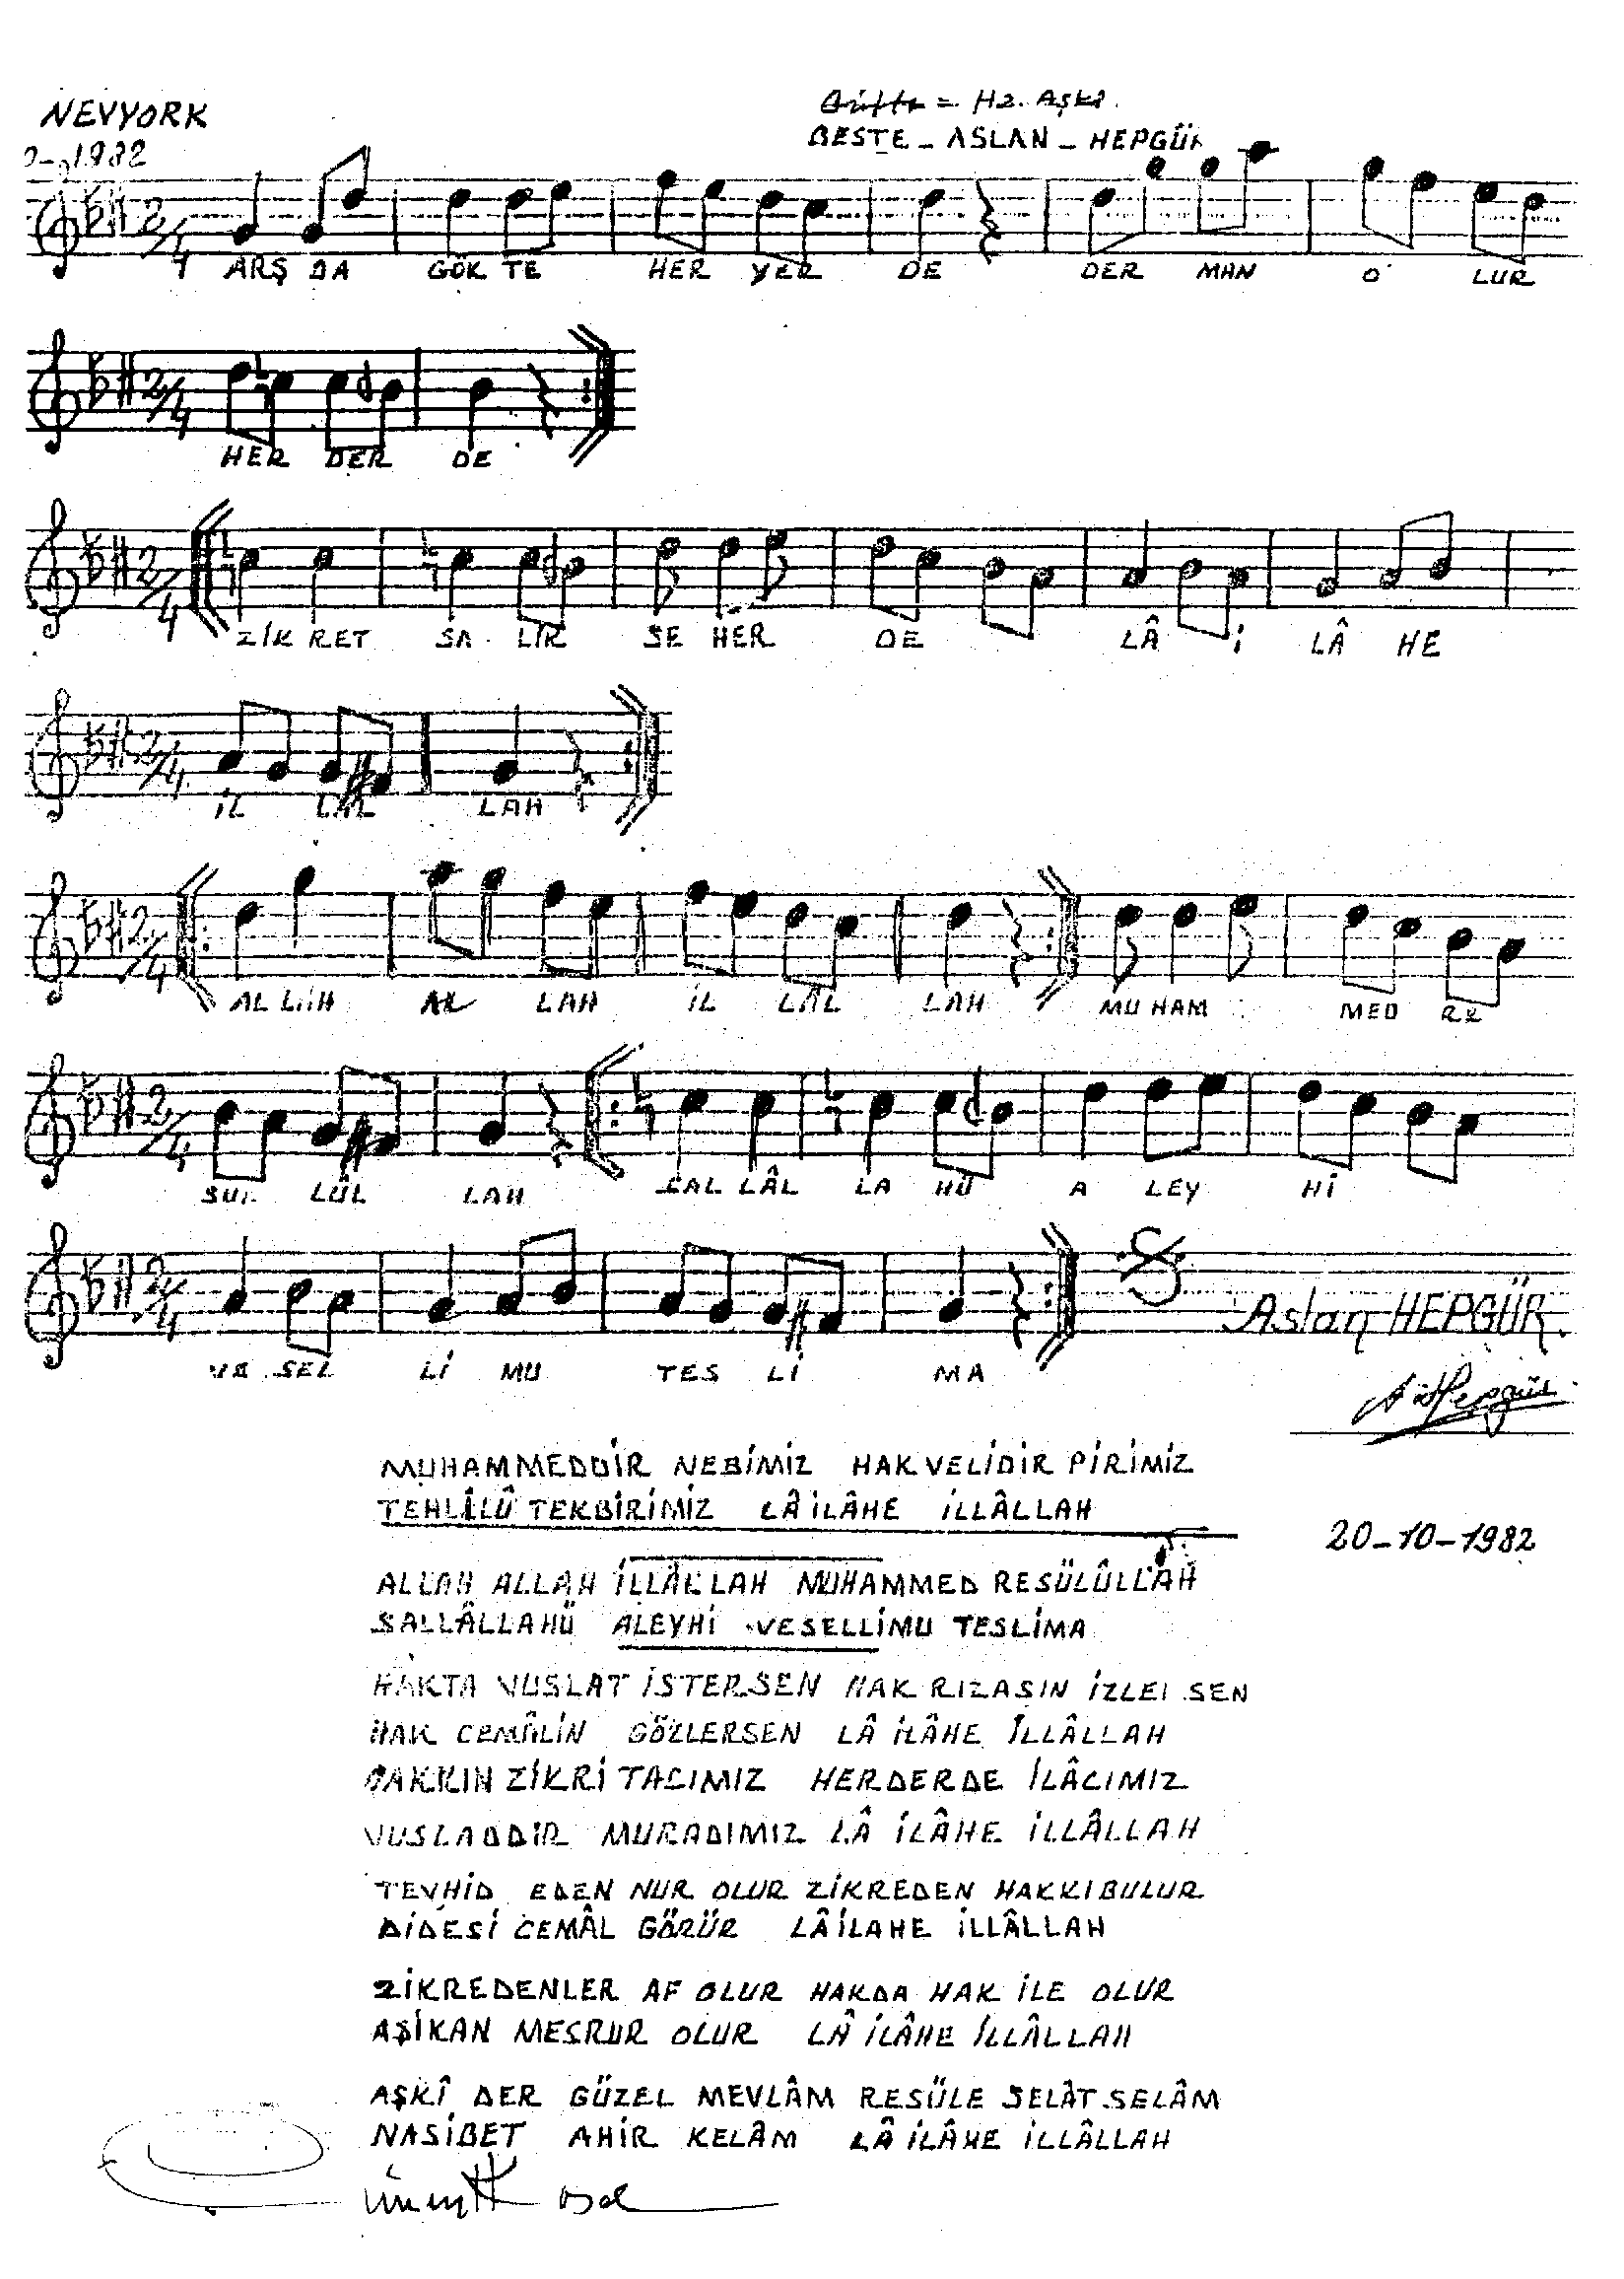 NEVYORK
Güfte = Hz. Aşki.
BESTE - ASLAN - HEPGÜR
1982
2/4
ARŞ DA GÖK TE HER YER DE DER MAN O LUR
2/4
HER DER DE
2/4
ZİK RET SA LİK SE HER DE LÂ İ LÂ HE
2/4
İL LÂL LAH
2/4
AL LAH AL LAH İL LÂL LAH MU HAM MED RE
2/4
SUL LÛL LAH SAL LÂL LA HÜ A LEY Hİ
2/4
VE SEL Lİ MU TES Lİ MA
Aslan HEPGÜR.
A Hepgür
MUHAMMEDDİR NEBİMİZ HAK VELİDİR PİRİMİZ
TEHLİLÛ TEKBİRİMİZ LÂ İLÂHE İLLÂLLAH
20-10-1982
ALLAH ALLAH İLLÂLLAH MUHAMMED RESÜLÛLLAH
SALLÂLLAHÜ ALEYHİ VESELLİMU TESLİMA
HAKTA VUSLAT İSTERSEN HAK RIZASIN İZLER SEN
HAK CEMÂLİN GÖZLERSEN LÂ İLÂHE İLLÂLLAH
HAKKIN ZİKRİ TACIMIZ HERDERDE İLÂCIMIZ
VUSLADDIR MURADIMIZ LÂ İLÂHE İLLÂLLAH
TEVHİD EDEN NUR OLUR ZİKREDEN HAKKIBULUR
DİDESİ CEMÂL GÖRÜR LÂİLAHE İLLÂLLAH
ZİKREDENLER AF OLUR HAKDA HAK İLE OLUR
AŞİKAN MESRUR OLUR LÂ İLÂHE İLLÂLLAH
AŞKÎ DER GÜZEL MEVLÂM RESÜLE SELÂT SELÂM
NASİBET AHİR KELÂM LÂ İLÂHE İLLÂLLAH